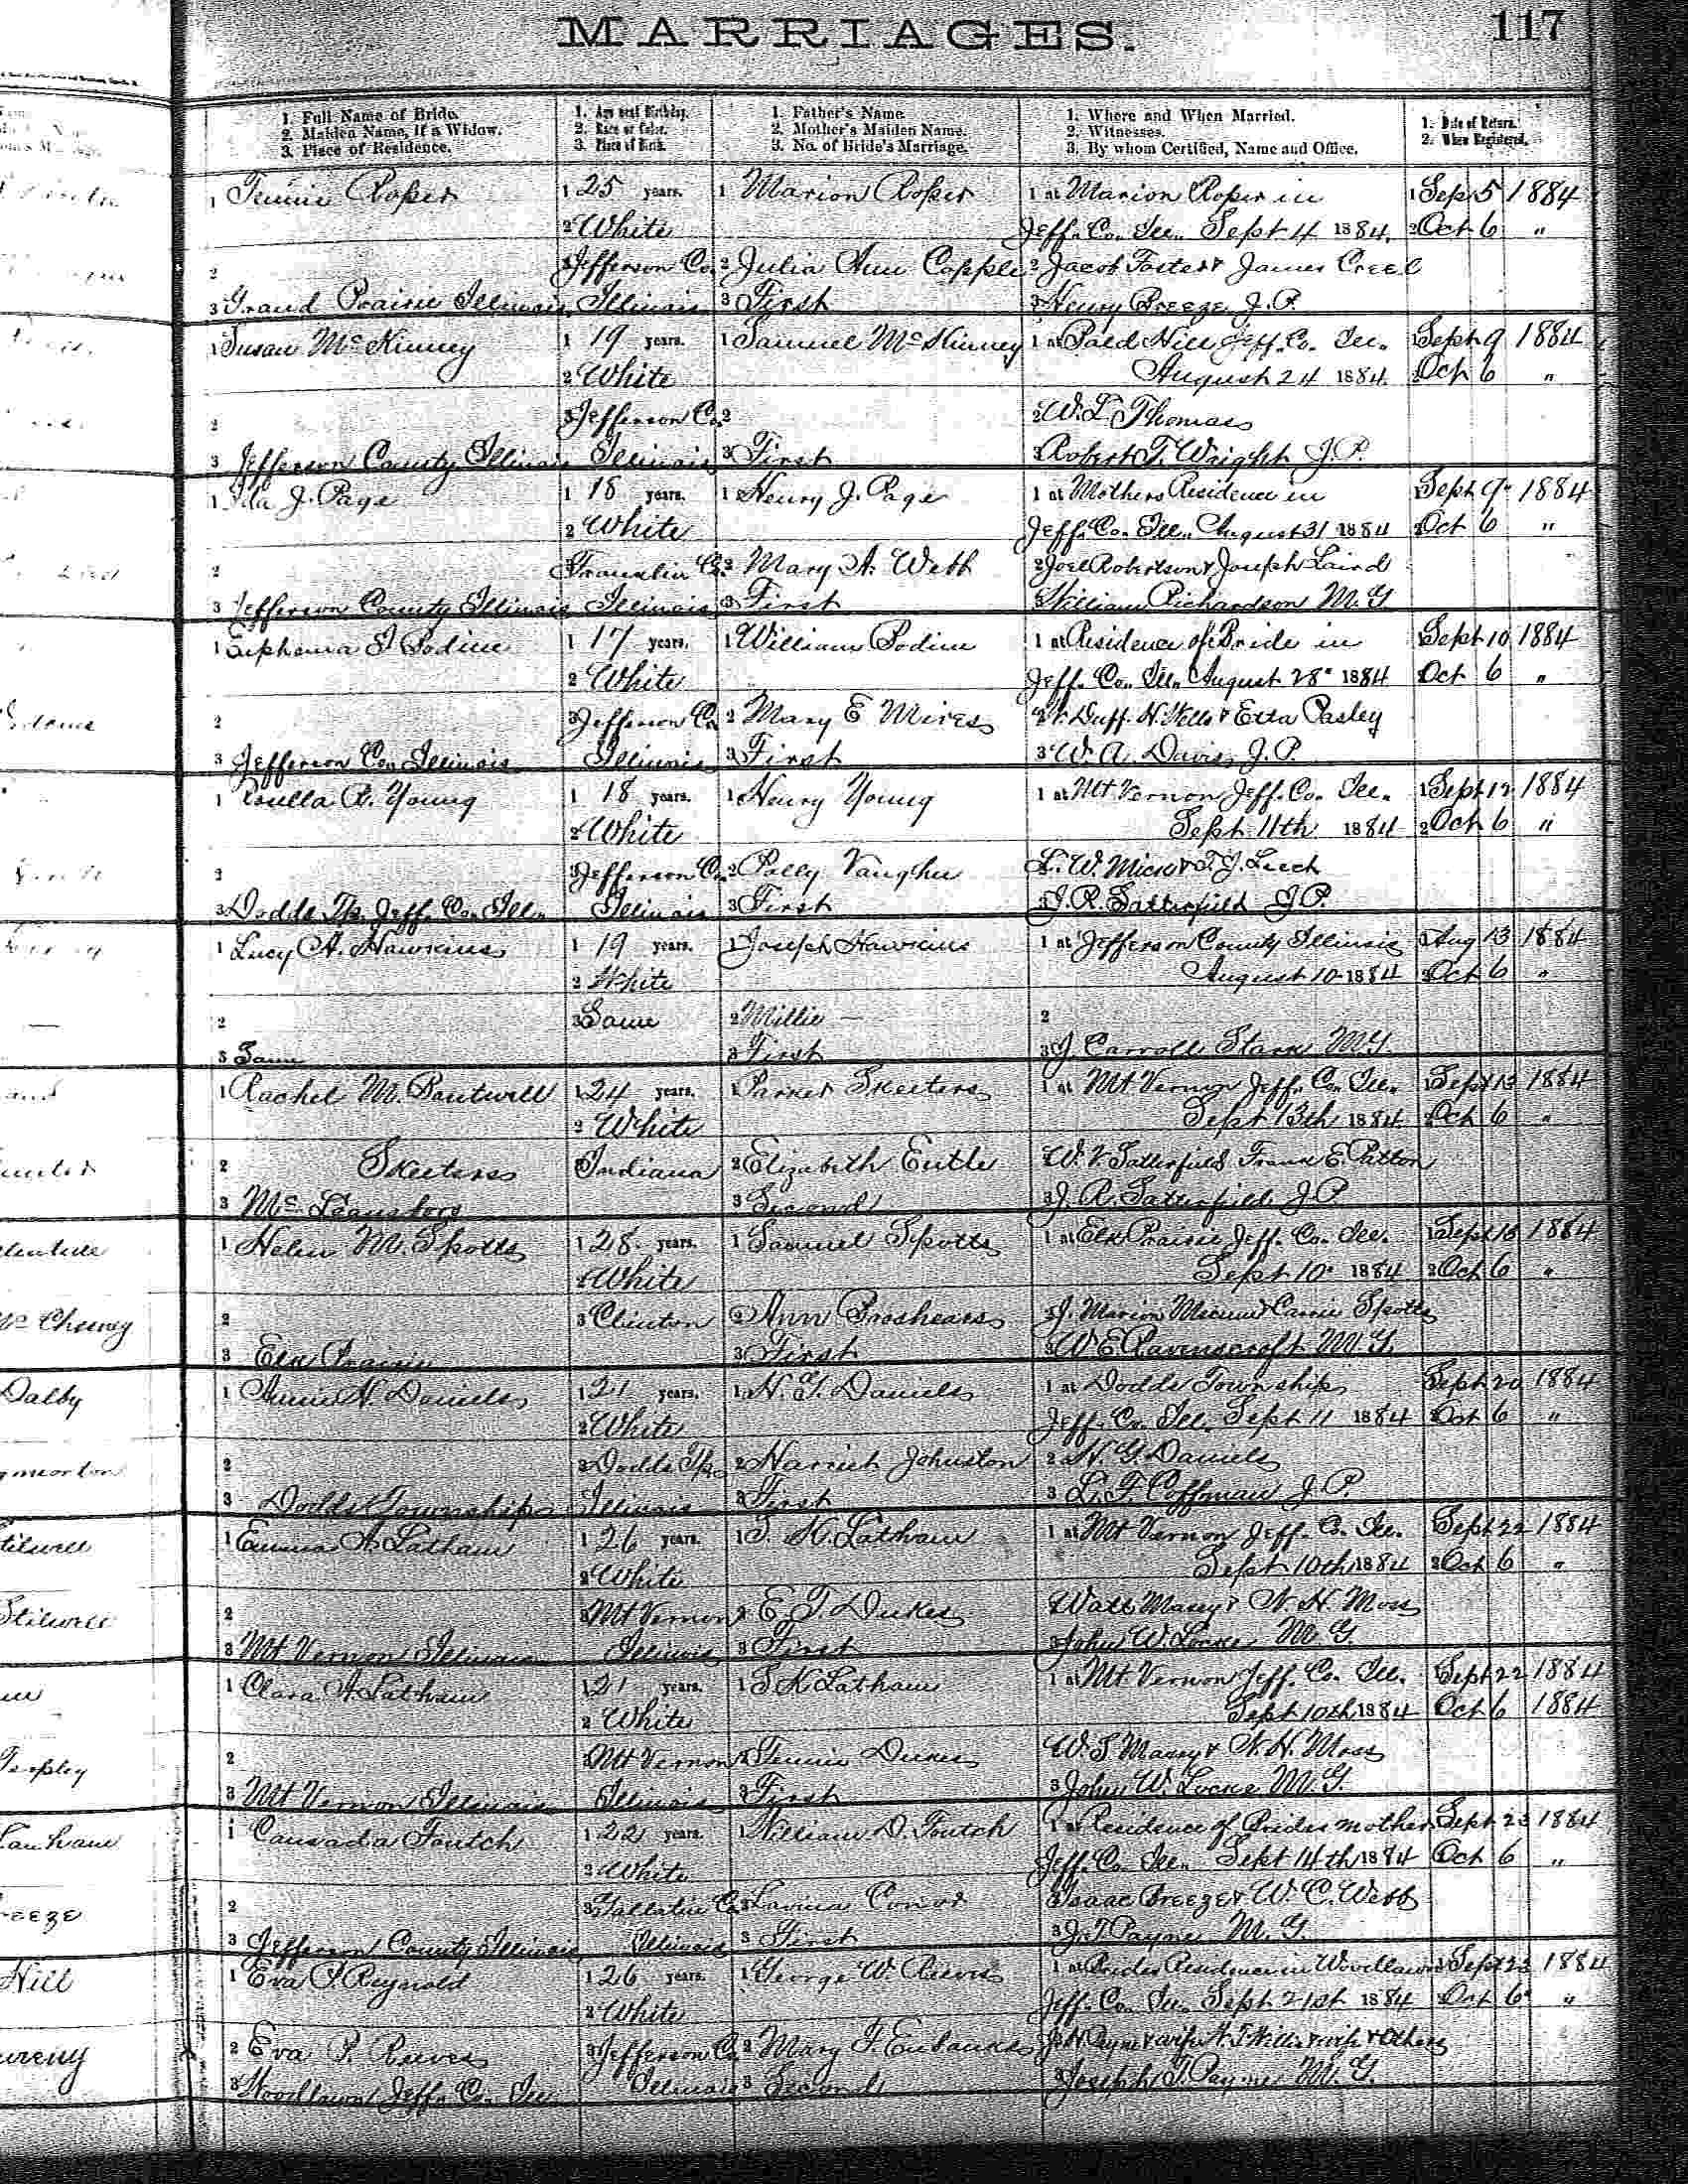 MARRIAGES. 117
1. Full Name of Bride. 1. Age next Birthday. 1. Father's Name 1. Where and When Married. 1. Date of Return.
2. Maiden Name, If a Widow. 2. Race or Color. 2. Mother's Maiden Name. 2. Witnesses. 2. When Registered.
3. Place of Residence. 3. Place of Birth. 3. No. of Bride's Marriage. 3. By whom Certified, Name and Office.
1 Roper 1 25 years. 1 Marion Roper 1 at Marion Roper in 1 Sept 5 1884
2 White Jeff. Co. Ill. Sept 4 1884. 2 Oct 6 "
2 3 Jefferson Co. 2 Julia Ann Copple 2 Jacob Foster & James Creel
3 Grand Prairie Illinois Illinois 3 First 3 Henry Breeze J.P.
1 Susan McKinney 1 19 years. 1 Samuel McKinney 1 at Bald Hill Jeff. Co. Ill. 1 Sept 9 1884
2 White August 24 1884. 2 Oct 6 "
2 3 Jefferson Co. 2 2 W. L. Thomas
3 Jefferson County Illinois Illinois 3 First 3 Robert T. Wright J.P.
1 Ida J. Page 1 18 years. 1 Henry J. Page 1 at Mothers Residence in 1 Sept 9 1884
2 White Jeff. Co. Ill. August 31 1884 2 Oct 6 "
2 Franklin Co. 2 Mary A. Webb 2 Joel Robertson & Joseph Laird
3 Jefferson County Illinois Illinois 3 First 3 William Richardson M.G.
1 Bodine 1 17 years. 1 William Bodine 1 at Residence of Bride in 1 Sept 10 1884
2 White Jeff. Co. Ill. August 28 1884 2 Oct 6 "
2 3 Jefferson Co. 2 Mary E Mires 2 Duff. N. Wells & Etta Pasley
3 Jefferson Co. Illinois Illinois 3 First 3 W. A. Davis J.P.
1 Young 1 18 years. 1 Henry Young 1 at Mt Vernon Jeff. Co. Ill. 1 Sept 12 1884
2 White Sept 11th 1884 2 Oct 6 "
2 3 Jefferson Co. 2 Polly Vaughn L. W. & T. J. Leech
3 Dodds Tp. Jeff. Co. Ill. Illinois 3 First 3 J. R. Satterfield J.P.
1 Lucy A. Hawkins 1 19 years. 1 Joseph Hawkins 1 at Jefferson County Illinois 1 Aug 13 1884
2 White August 10 1884 2 Oct 6 "
2 3 Same 2 Millie — 2
3 Same 3 First 3 J. Carroll Stark M.G.
1 Rachel M. Boutwell 1 24 years. 1 Parker Skeeters 1 at Mt Vernon Jeff. Co. Ill. 1 Sept 13 1884
2 White Sept 13th 1884 2 Oct 6 "
2 Skeeters 3 Indiana 2 Elizabeth W. V. Satterfield Frank E. Patton
3 McLeansboro 3 Second 3 J. R. Satterfield J.P.
1 Helen M. Spotts 1 28 years. 1 Samuel Spotts 1 at Elk Prairie Jeff. Co. Ill. 1 Sept 18 1884
2 White Sept 10 1884 2 Oct 6 "
2 3 Clinton 2 Ann Broshears 2 J. Marion & Carrie Spotts
3 Elk Prairie 3 First 3 W E Ravenscroft M.G.
1 Annie N. Daniels 1 21 years. 1 N. G. Daniels 1 at Dodds Township Sept 20 1884
2 White Jeff. Co. Ill. Sept 11 1884 2 Oct 6 "
2 3 Dodds Tp. 2 Harriet Johnston 2 N. G. Daniels
3 Dodds Township Illinois 3 First 3 L. F. Coffman J.P.
1 Emma A. Latham 1 26 years. 1 S. K. Latham 1 at Mt Vernon Jeff. Co. Ill. Sept 22 1884
2 White Sept 10th 1884 2 Oct 6 "
2 3 Mt Vernon 2 E. J. Dukes Walt Massey & N. H. Moss
3 Mt Vernon Illinois Illinois 3 First 3 John W. Locke M.G.
1 Clara A. Latham 1 21 years. 1 S K Latham 1 at Mt Vernon Jeff. Co. Ill. Sept 22 1884
2 White Sept 10th 1884 Oct 6 1884
2 3 Mt Vernon 2 Dukes W. S Massey & N. H. Moss
3 Mt Vernon Illinois Illinois 3 First 3 John W. Locke M.G.
1 Canzada Foutch 1 22 years. 1 William D. Foutch 1 at Residence of Brides mother Sept 23 1884
2 White Jeff. Co. Ill. Sept 14th 1884 Oct 6 "
2 3 Gallatin Co. 2 Lavina Conor 2 Isaac Breeze & W. C. Webb
3 Jefferson County Illinois Illinois 3 First 3 J. T. Payne M.G.
1 Eva P. Reynold 1 26 years. 1 George W. Reeves 1 at Brides Residence in Woodlawn 1 Sept 23 1884
2 White Jeff. Co. Ill. Sept 21st 1884 Oct 6 "
2 Eva P. Reeves 3 Jefferson Co. 2 Mary F. Eubanks J. N. Payne & wife N. T. Willis & wife & others
3 Woodlawn Jeff. Co. Ill. Illinois 3 Second 3 Joseph T. Payne M.G.